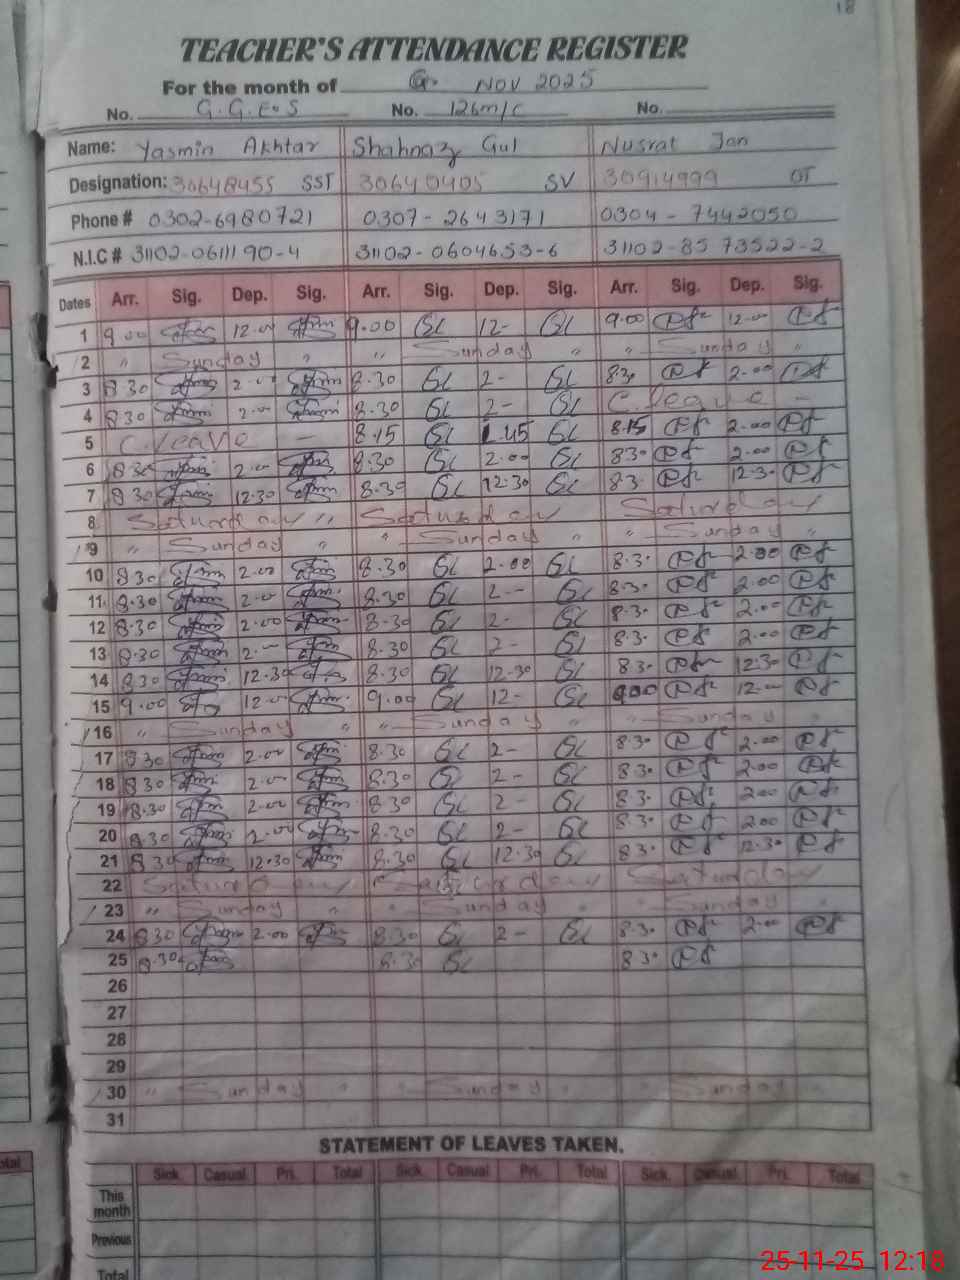 18
TEACHER'S ATTENDANCE REGISTER
For the month of Nov 2025
No. G.G.E.S No. 126m/C No.
Name: Yasmin Akhtar Shahnaz Gul Nusrat Jan
Designation: 30648455 SST 30640405 SV 30914999 OT
Phone # 0302-6980721 0307-2643171 0304-7442050
N.I.C # 31102-0611190-4 31102-0604653-6 31102-8573522-2
Dates Arr. Sig. Dep. Sig. Arr. Sig. Dep. Sig. Arr. Sig. Dep. Sig.
1 9.00 12.00 9.00 12- 9.00 12.00
2 " Sunday " " Sunday " " Sunday "
3 8.30 2.00 8.30 2- 8.30 2.00
4 8.30 2.00 8.30 2- C.leave -
5 C.leave - 8.15 1.45 8.15 2.00
6 8.30 2.00 8.30 2.00 8.30 2.00
7 8.30 12.30 8.30 12.30 8.3. 12.30
8 Saturday " Saturday Saturday
9 " Sunday " " Sunday " " Sunday "
10 8.30 2.00 8.30 2.00 8.3. 2.00
11 8.30 2.00 8.30 2-- 8.3. 2.00
12 8.30 2.00 8.30 2- 8.3. 2.00
13 8.30 2.-- 8.30 2- 8.3. 2.00
14 8.30 12.30 8.30 12.30 8.3. 12.30
15 9.00 12.00 9.00 12- 9.00 12.00
16 " Sunday " " Sunday " " Sunday "
17 8.30 2.00 8.30 2- 8.3. 2.00
18 8.30 2.00 8.30 2- 8.3. 2.00
19 8.30 2.00 8.30 2- 8.3. 2.00
20 8.30 2.00 8.30 2- 8.3. 2.00
21 8.30 12.30 8.30 12.30 8.3. 12.30
22 Saturday Saturday Saturday
23 " Sunday " " Sunday " " Sunday "
24 8.30 2.00 8.30 2- 8.3. 2.00
25 8.30 8.30 8.3.
26
27
28
29
30 " Sunday " " Sunday " " Sunday
31
STATEMENT OF LEAVES TAKEN.
Sick. Casual Pri. Total Sick. Casual Pri. Total Sick. Casual Pri. Total
This month
Previous
Total
25-11-25 12:18